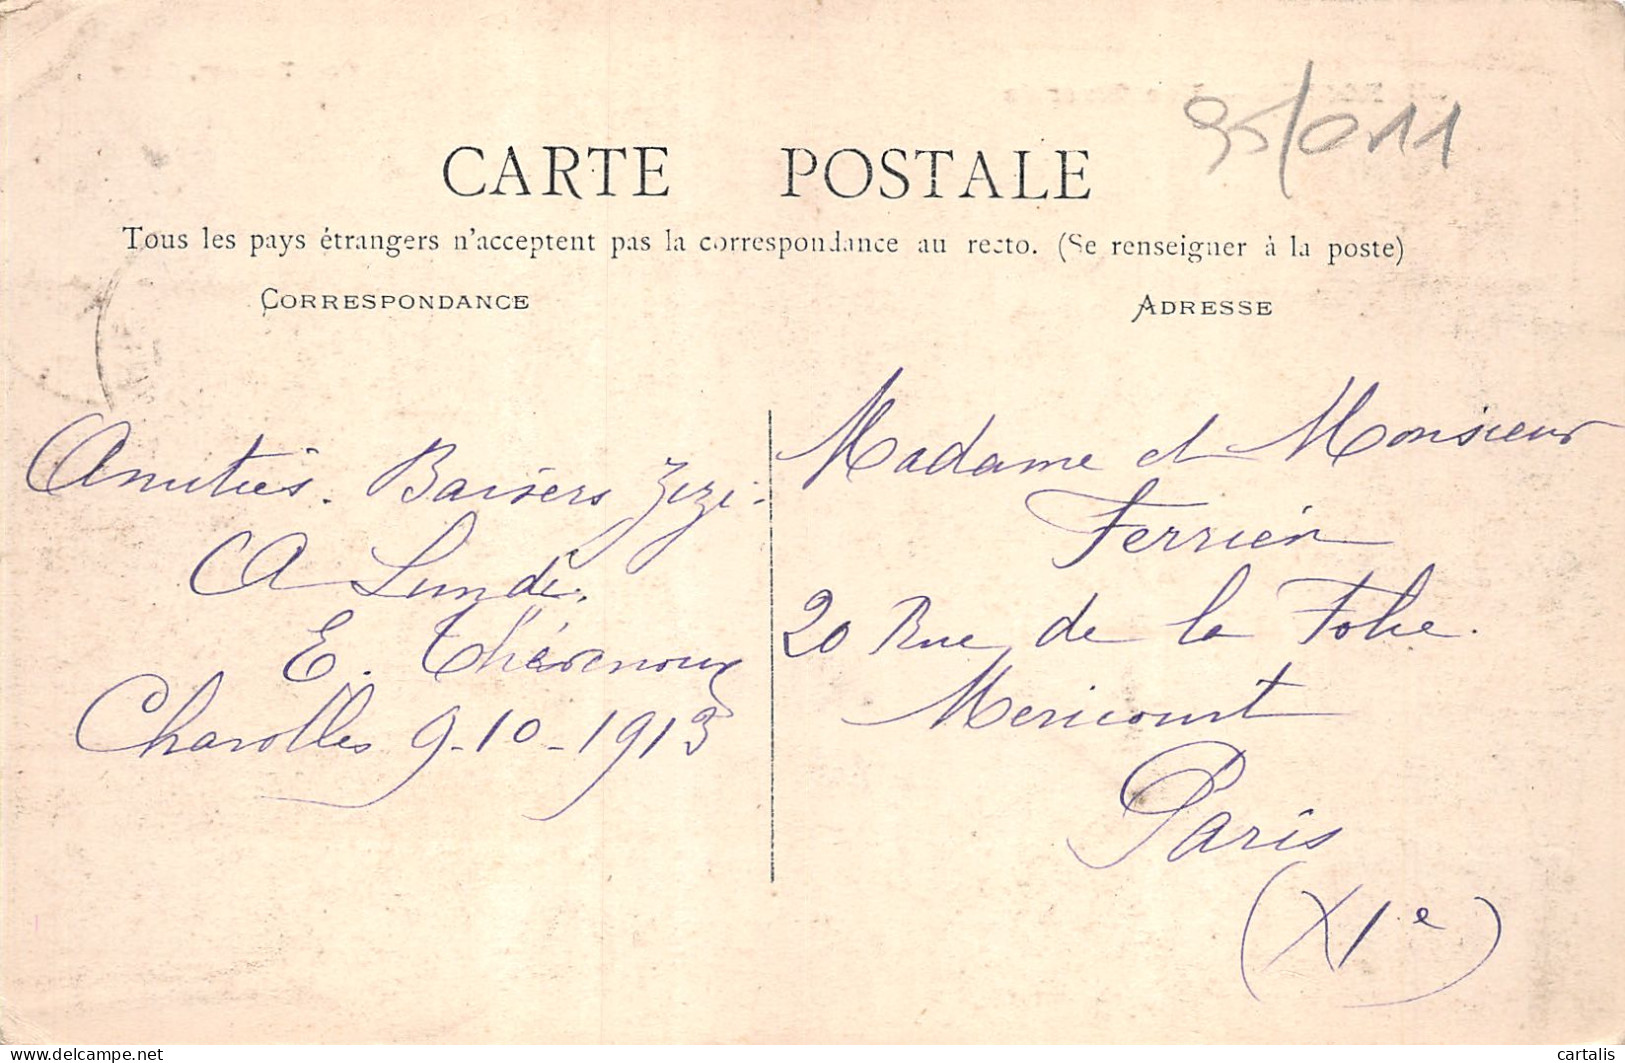 95/011
CARTE POSTALE
Tous les pays étrangers n'acceptent pas la correspondance au recto. (Se renseigner à la poste)
CORRESPONDANCE
ADRESSE
Amitiés. Baisers Zizi.
A Lundi.
E. Thévenoux
Charolles 9-10-1913
Madame et Monsieur
Ferrier
20 Rue de la Folie.
Mericourt
Paris
(XIe)
www.delcampe.net
cartalis